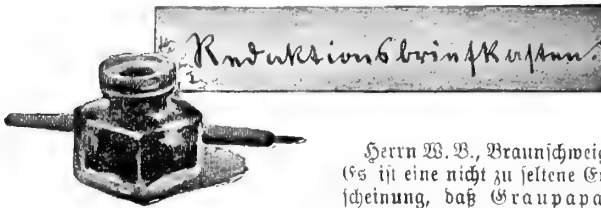 Redaktionsbriefkasten.
Herrn W. B., Braunschweig
Es ist eine nicht zu seltene Er
scheinung, daß Graupapa